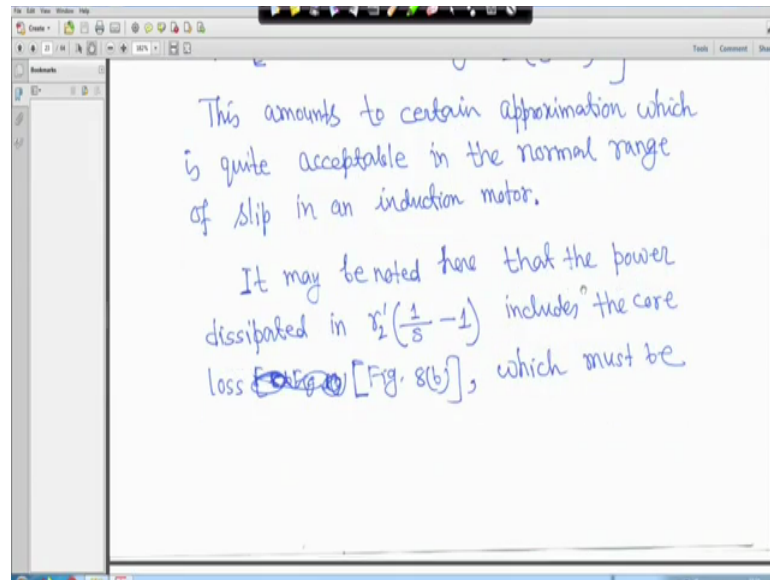 File Edit View Window Help
Create
21 / 44
182%
Tools Comment
Bookmarks
This amounts to certain approximation which
is quite acceptable in the normal range
of slip in an induction motor.
It may be noted here that the power
dissipated in r₂'(1/s - 1) includes the core
loss [Fig. 8(b)], which must be